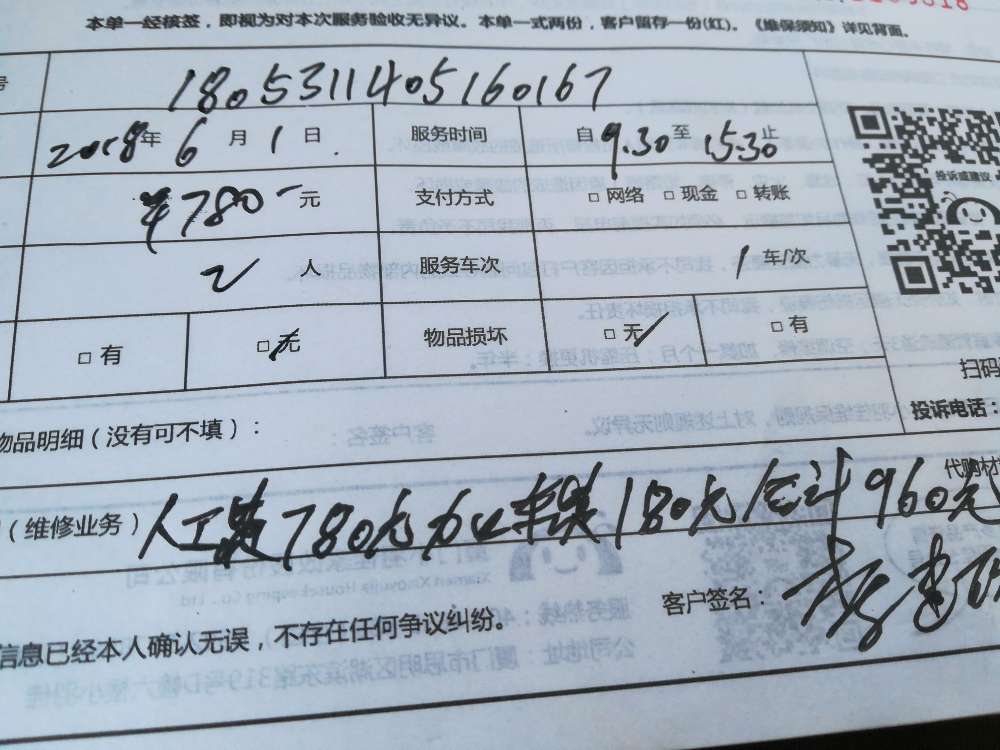 本单一经核签，即视为对本次服务验收无异议。本单一式两份，客户留存一份(红)。《维保须知》详见背面。
号 180531140516 0167
2018年 6 月 1 日 服务时间 自 9.30 至 15.30 止
￥780- 元 支付方式 □ 网络 □ 现金 □ 转账
投诉或建议
2 人 服务车次 1 车/次
□ 有 □ 无 物品损坏 □ 无 □ 有
扫码
投诉电话：
物品明细（没有可不填）：
代购材
（维修业务） 人工费780元加车费180元合计960元
客户签名：
信息已经本人确认无误，不存在任何争议纠纷。